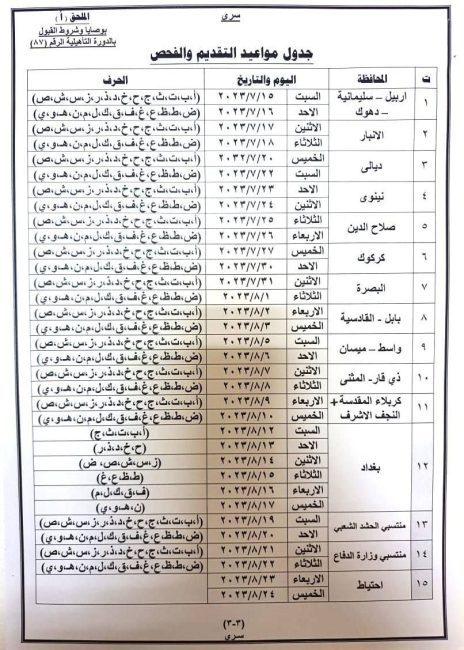 سري
الملحق (أ)
بوصايا وشروط القبول
بالدورة التأهيلية الرقم (٨٧)
جدول مواعيد التقديم والفحص
ت المحافظة اليوم والتاريخ الحرف
١ اربيل – سليمانية – دهوك السبت ٢٠٢٣/٧/١٥ (أ،ب،ت،ث،ج،ح،خ،د،ذ،ر،ز،س،ش،ص)
الاحد ٢٠٢٣/٧/١٦ (ض،ط،ظ،ع،غ،ف،ق،ك،ل،م،ن،هـ،و،ي)
٢ الانبار الاثنين ٢٠٢٣/٧/١٧ (أ،ب،ت،ث،ج،ح،خ،د،ذ،ر،ز،س،ش،ص)
الثلاثاء ٢٠٢٣/٧/١٨ (ض،ط،ظ،ع،غ،ف،ق،ك،ل،م،ن،هـ،و،ي)
٣ ديالى الخميس ٢٠٣٢/٧/٢٠ (أ،ب،ت،ث،ج،ح،خ،د،ذ،ر،ز،س،ش،ص)
السبت ٢٠٢٣/٧/٢٢ (ض،ط،ظ،ع،غ،ف،ق،ك،ل،م،ن،هـ،و،ي)
٤ نينوى الاحد ٢٠٢٣/٧/٢٣ (أ،ب،ت،ث،ج،ح،خ،د،ذ،ر،ز،س،ش،ص)
الاثنين ٢٠٢٣/٧/٢٤ (ض،ط،ظ،ع،غ،ف،ق،ك،ل،م،ن،هـ،و،ي)
٥ صلاح الدين الثلاثاء ٢٠٢٣/٧/٢٥ (أ،ب،ت،ث،ج،ح،خ،د،ذ،ر،ز،س،ش،ص)
الاربعاء ٢٠٢٣/٧/٢٦ (ض،ط،ظ،ع،غ،ف،ق،ك،ل،م،ن،هـ،و،ي)
٦ كركوك الخميس ٢٠٢٣/٧/٢٧ (أ،ب،ت،ث،ج،ح،خ،د،ذ،ر،ز،س،ش،ص)
الاحد ٢٠٢٣/٧/٣٠ (ض،ط،ظ،ع،غ،ف،ق،ك،ل،م،ن،هـ،و،ي)
٧ البصرة الاثنين ٢٠٢٣/٧/٣١ (أ،ب،ت،ث،ج،ح،خ،د،ذ،ر،ز،س،ش،ص)
الثلاثاء ٢٠٢٣/٨/١ (ض،ط،ظ،ع،غ،ف،ق،ك،ل،م،ن،هـ،و،ي)
٨ بابل - القادسية الاربعاء ٢٠٢٣/٨/٢ (أ،ب،ت،ث،ج،ح،خ،د،ذ،ر،ز،س،ش،ص)
الخميس ٢٠٢٣/٨/٣ (ض،ط،ظ،ع،غ،ف،ق،ك،ل،م،ن،هـ،و،ي)
٩ واسط – ميسان السبت ٢٠٢٣/٨/٥ (أ،ب،ت،ث،ج،ح،خ،د،ذ،ر،ز،س،ش،ص)
الاحد ٢٠٢٣/٨/٦ (ض،ط،ظ،ع،غ،ف،ق،ك،ل،م،ن،هـ،و،ي)
١٠ ذي قار- المثنى الاثنين ٢٠٢٣/٨/٧ (أ،ب،ت،ث،ج،ح،خ،د،ذ،ر،ز،س،ش،ص)
الثلاثاء ٢٠٢٣/٨/٨ (ض،ط،ظ،ع،غ،ف،ق،ك،ل،م،ن،هـ،و،ي)
١١ كربلاء المقدسة+ النجف الاشرف الاربعاء ٢٠٢٣/٨/٩ (أ،ب،ت،ث،ج،ح،خ،د،ذ،ر،ز،س،ش،ص)
الخميس ٢٠٢٣/٨/١٠ (ض،ط،ظ،ع،غ،ف،ق،ك،ل،م،ن،هـ،و،ي)
١٢ بغداد السبت ٢٠٢٣/٨/١٢ (أ،ب،ت،ث،ج)
الاحد ٢٠٢٣/٨/١٣ (ح،خ،د،ذ،ر)
الاثنين ٢٠٢٣/٨/١٤ (ز،س،ش،ص، ض)
الثلاثاء ٢٠٢٣/٨/١٥ (ط،ظ،ع،غ)
الاربعاء ٢٠٢٣/٨/١٦ (ف،ق،ك،ل،م)
الخميس ٢٠٢٣/٨/١٧ (ن،هـ،و،ي)
١٣ منتسبي الحشد الشعبي السبت ٢٠٢٣/٨/١٩ (أ،ب،ت،ث،ج،ح،خ،د،ذ،ر،ز،س،ش،ص)
الاحد ٢٠٢٣/٨/٢٠ (ض،ط،ظ،ع،غ،ف،ق،ك،ل،م،ن،هـ،و،ي)
١٤ منتسبي وزارة الدفاع الاثنين ٢٠٢٣/٨/٢١ (أ،ب،ت،ث،ج،ح،خ،د،ذ،ر،ز،س،ش،ص)
الثلاثاء ٢٠٢٣/٨/٢٢ (ض،ط،ظ،ع،غ،ف،ق،ك،ل،م،ن،هـ،و،ي)
١٥ احتياط الاربعاء ٢٠٢٣/٨/٢٣
الخميس ٢٠٢٣/٨/٢٤
(٣-٣)
سري